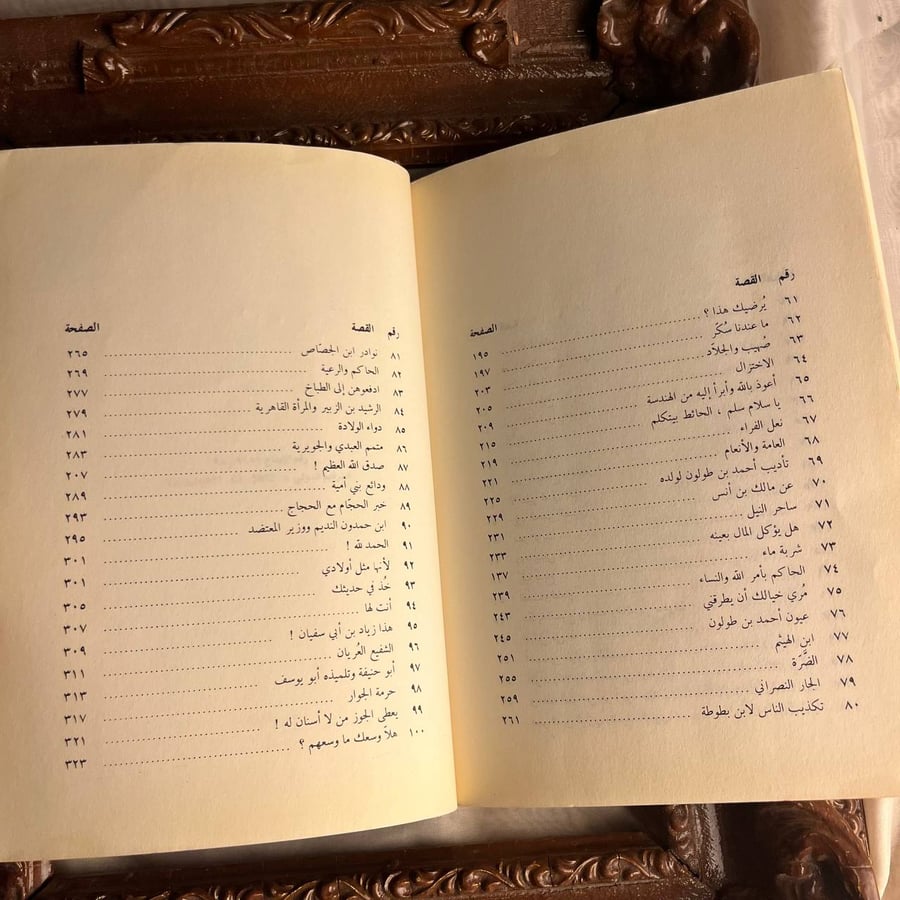 رقم القصة الصفحة
٦١ يُرضيك هذا ؟ ١٩٥
٦٢ ما عندنا سُكّر ١٩٧
٦٣ صُهيب والجلاّد ٢٠٣
٦٤ الاختزال ٢٠٥
٦٥ أعوذ بالله وأبرأ إليه من الهندسة ٢٠٩
٦٦ يا سلام سلم ، الحائط بيتكلم ٢١٥
٦٧ نعل الفراء ٢١٩
٦٨ العامة والأنعام ٢٢١
٦٩ تأديب أحمد بن طولون لولده ٢٢٥
٧٠ عن مالك بن أنس ٢٢٩
٧١ ساحر النيل ٢٣١
٧٢ هل يؤكل المال بعينه ٢٣٣
٧٣ شربة ماء ١٣٧
٧٤ الحاكم بأمر الله والنساء ٢٣٩
٧٥ مُري خيالك أن يطرقني ٢٤٣
٧٦ عيون أحمد بن طولون ٢٤٥
٧٧ ابن الهيثم ٢٥١
٧٨ الضَّرّة ٢٥٥
٧٩ الجار النصراني ٢٥٩
٨٠ تكذيب الناس لابن بطوطة ٢٦١
رقم القصة الصفحة
٨١ نوادر ابن الجصّاص ٢٦٥
٨٢ الحاكم والرعية ٢٦٩
٨٣ ادفعوهن إلى الطباخ ٢٧٧
٨٤ الرشيد بن الزبير والمرأة القاهرية ٢٧٩
٨٥ دواء الولادة ٢٨١
٨٦ متمم العبدي والجويرية ٢٨٣
٨٧ صدق الله العظيم ! ٢٠٧
٨٨ ودائع بني أمية ٢٨٩
٨٩ خبر الحجّام مع الحجاج ٢٩٣
٩٠ ابن حمدون النديم ووزير المعتضد ٢٩٥
٩١ الحمد لله ! ٣٠١
٩٢ لأنها مثل أولادي ٣٠١
٩٣ خُذ في حديثك ٣٠٥
٩٤ أنت لها ٣٠٧
٩٥ هذا زياد بن أبي سفيان ! ٣٠٩
٩٦ الشفيع العُريان ٣١١
٩٧ أبو حنيفة وتلميذه أبو يوسف ٣١٣
٩٨ حرمة الجوار ٣١٧
٩٩ يعطى الجوز من لا أسنان له ! ٣٢١
١٠٠ هلاّ وسعك ما وسعهم ؟ ٣٢٣